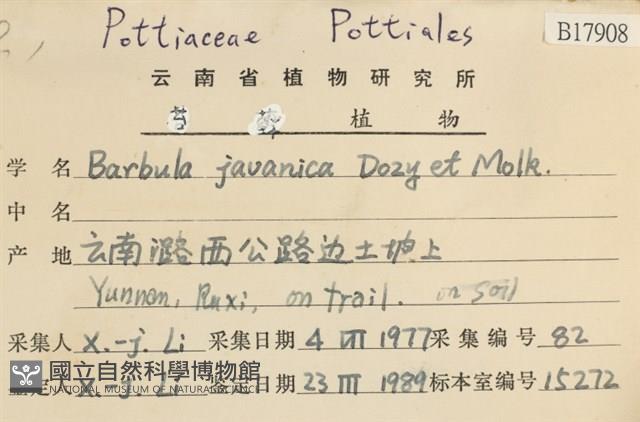 Pottiaceae Pottiales B17908
云南省植物研究所
苔藓植物
学名 Barbula javanica Dozy et Molk.
中名
产地 云南潞西公路边土坡上
Yunnan, Ruxi, on trail. on soil
采集人 X.-j. Li 采集日期 4 VIII 1977 采集编号 82
國立自然科學博物館
NATIONAL MUSEUM OF NATURAL SCIENCE
鉴定人 X.-j. Li 鉴定日期 23 III 1989 标本室编号 15272